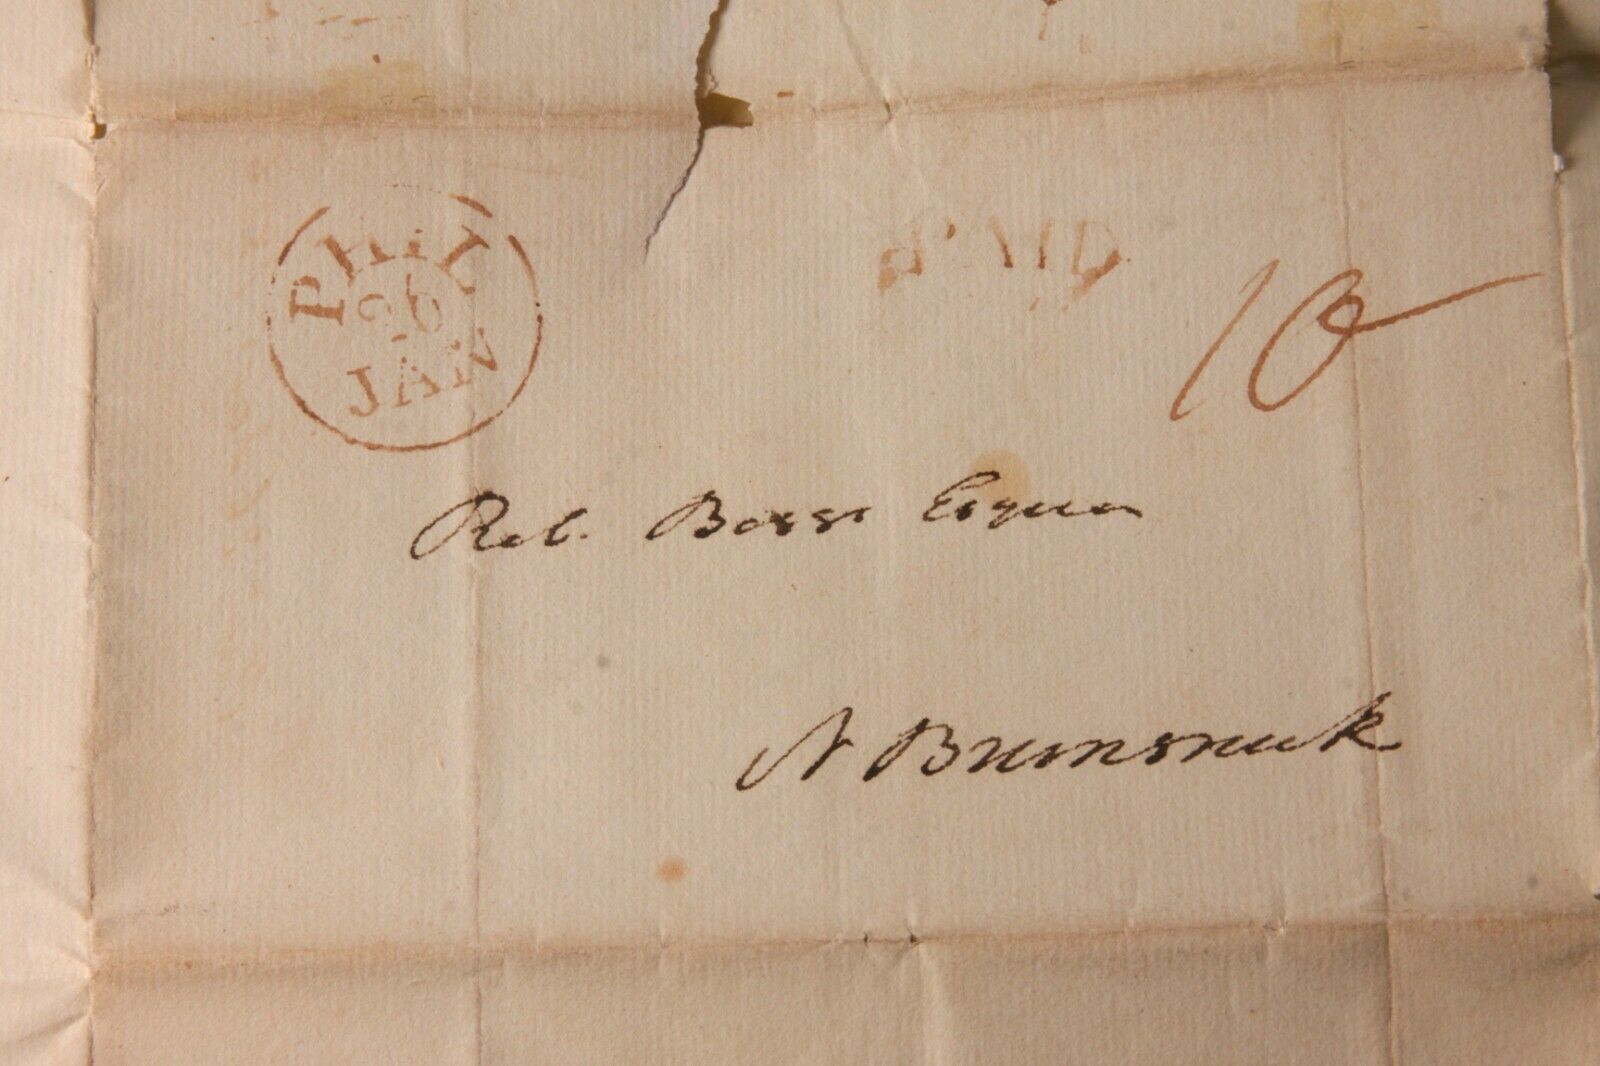 PHIL
26
JAN
PAID
10
Rob. Boggs Esquire
N Brunswick